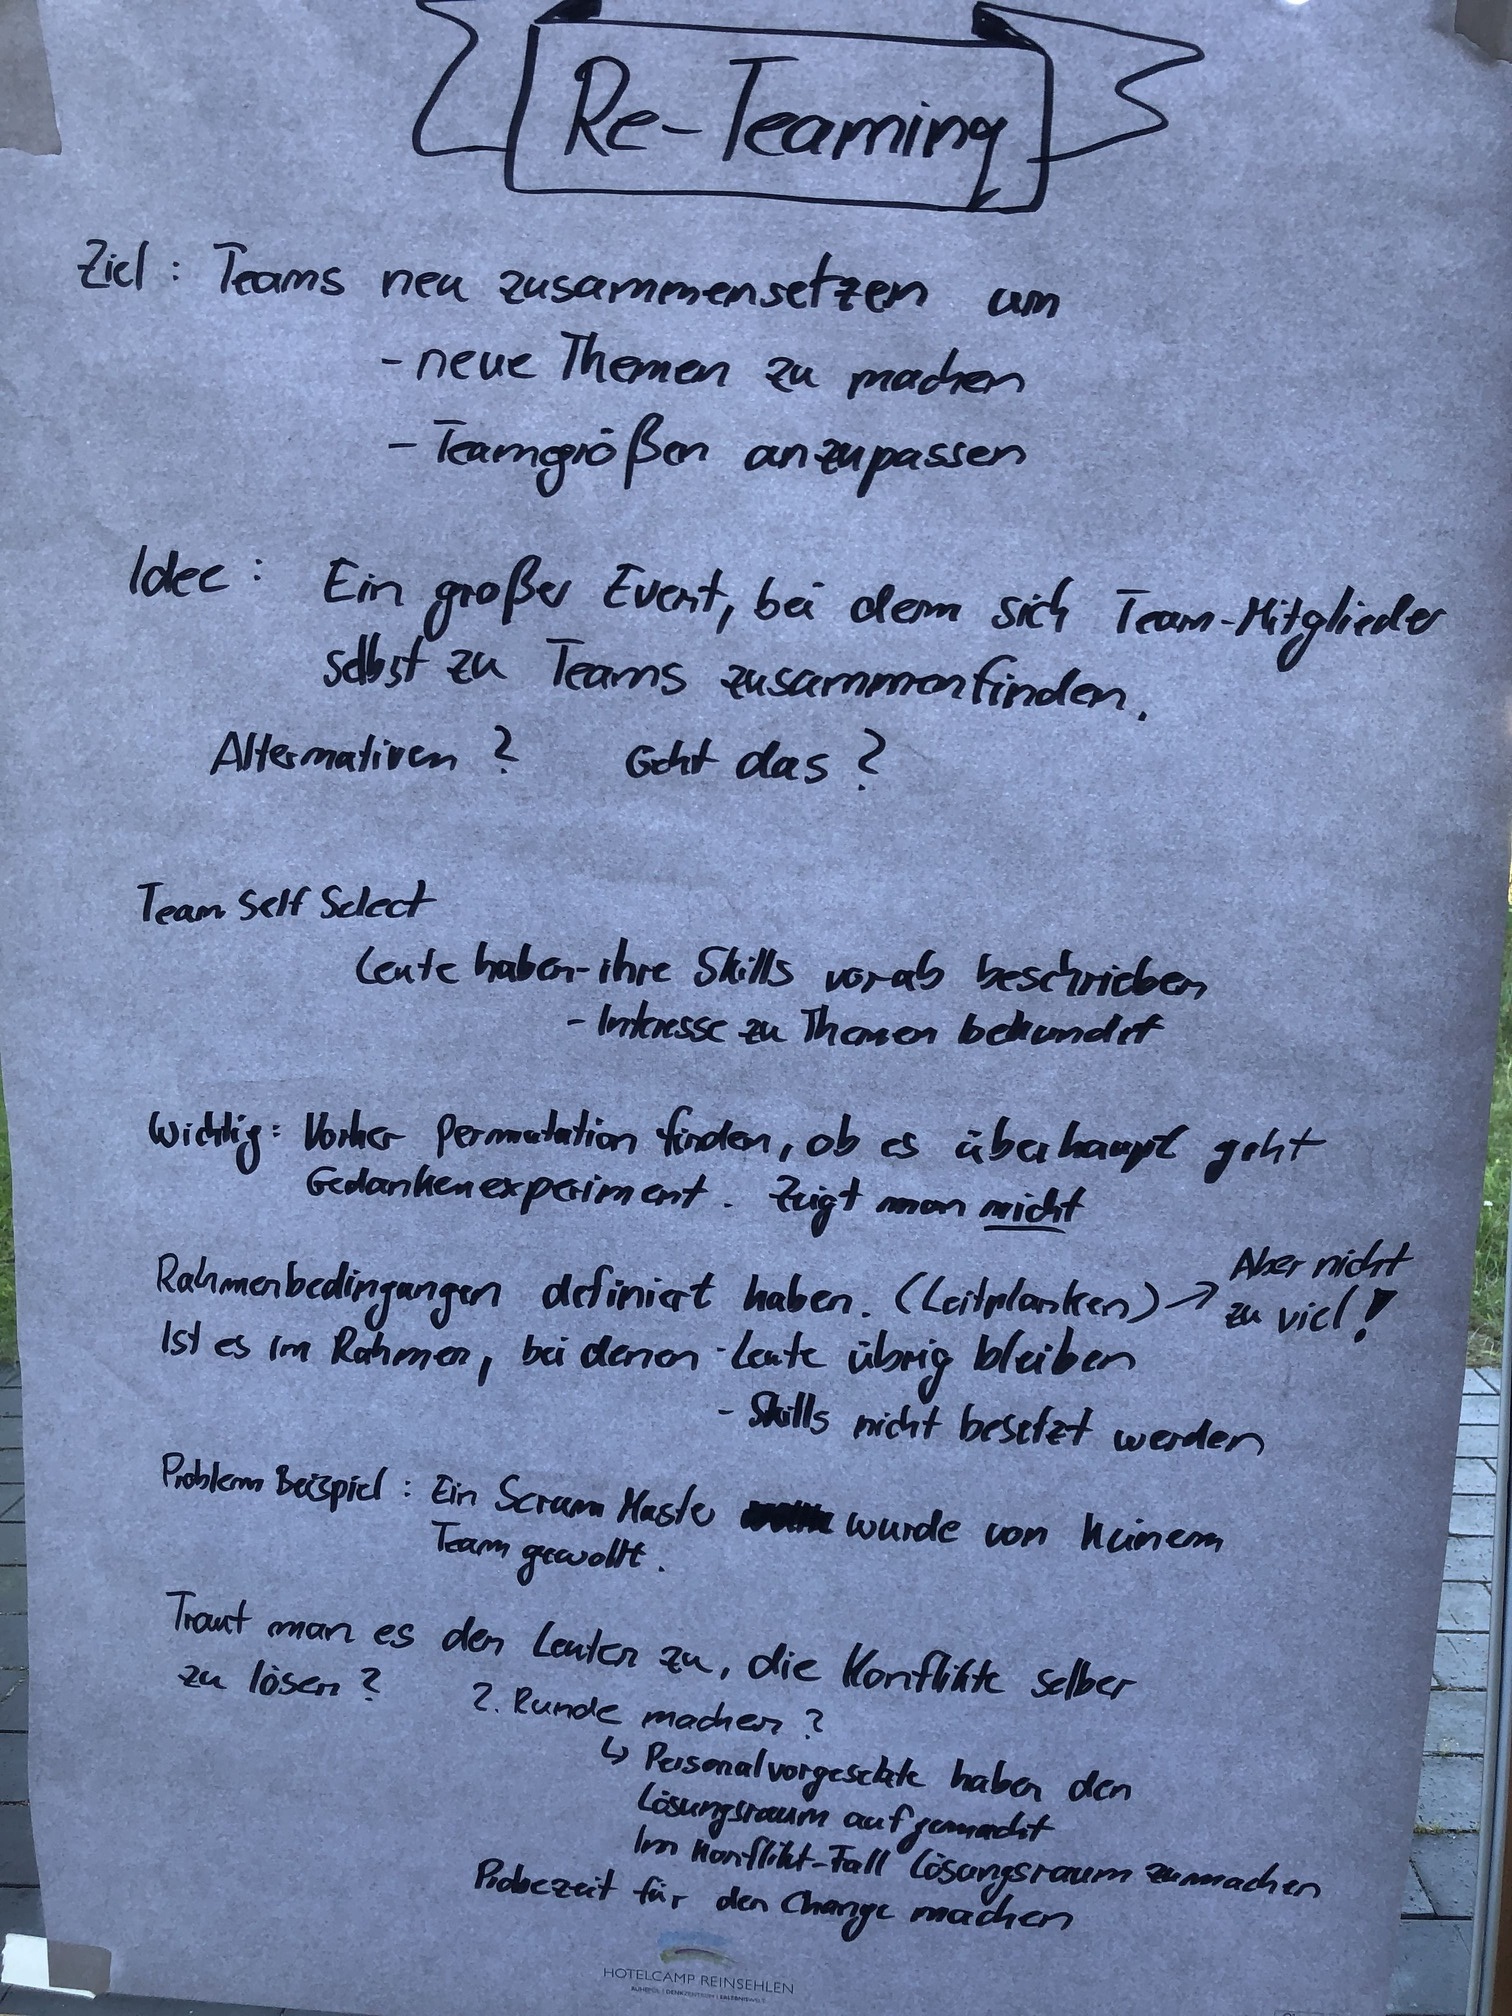 Re-Teaming
Ziel: Teams neu zusammensetzen um
- neue Themen zu machen
- Teamgrößen anzupassen
Idee: Ein großer Event, bei dem sich Team-Mitglieder
selbst zu Teams zusammenfinden.
Alternativen? Geht das?
Team Self Select
Leute haben - ihre Skills vorab beschrieben
- Interesse zu Themen bekundet
Wichtig: Vorher Permutation finden, ob es überhaupt geht
Gedankenexperiment. Zeigt man nicht
Rahmenbedingungen definiert haben. (Leitplanken) → Aber nicht
zu viel!
Ist es im Rahmen, bei denen - Leute übrig bleiben
- Skills nicht besetzt werden
Problem Beispiel: Ein Scrum Master wurde von keinem
Team gewollt.
Traut man es den Leuten zu, die Konflikte selber
zu lösen? 2. Runde machen?
↳ Personalvorgesetzte haben den
Lösungsraum aufgemacht
Im Konflikt-Fall Lösungsraum zumachen
Probezeit für den Change machen
HOTELCAMP REINSEHLEN